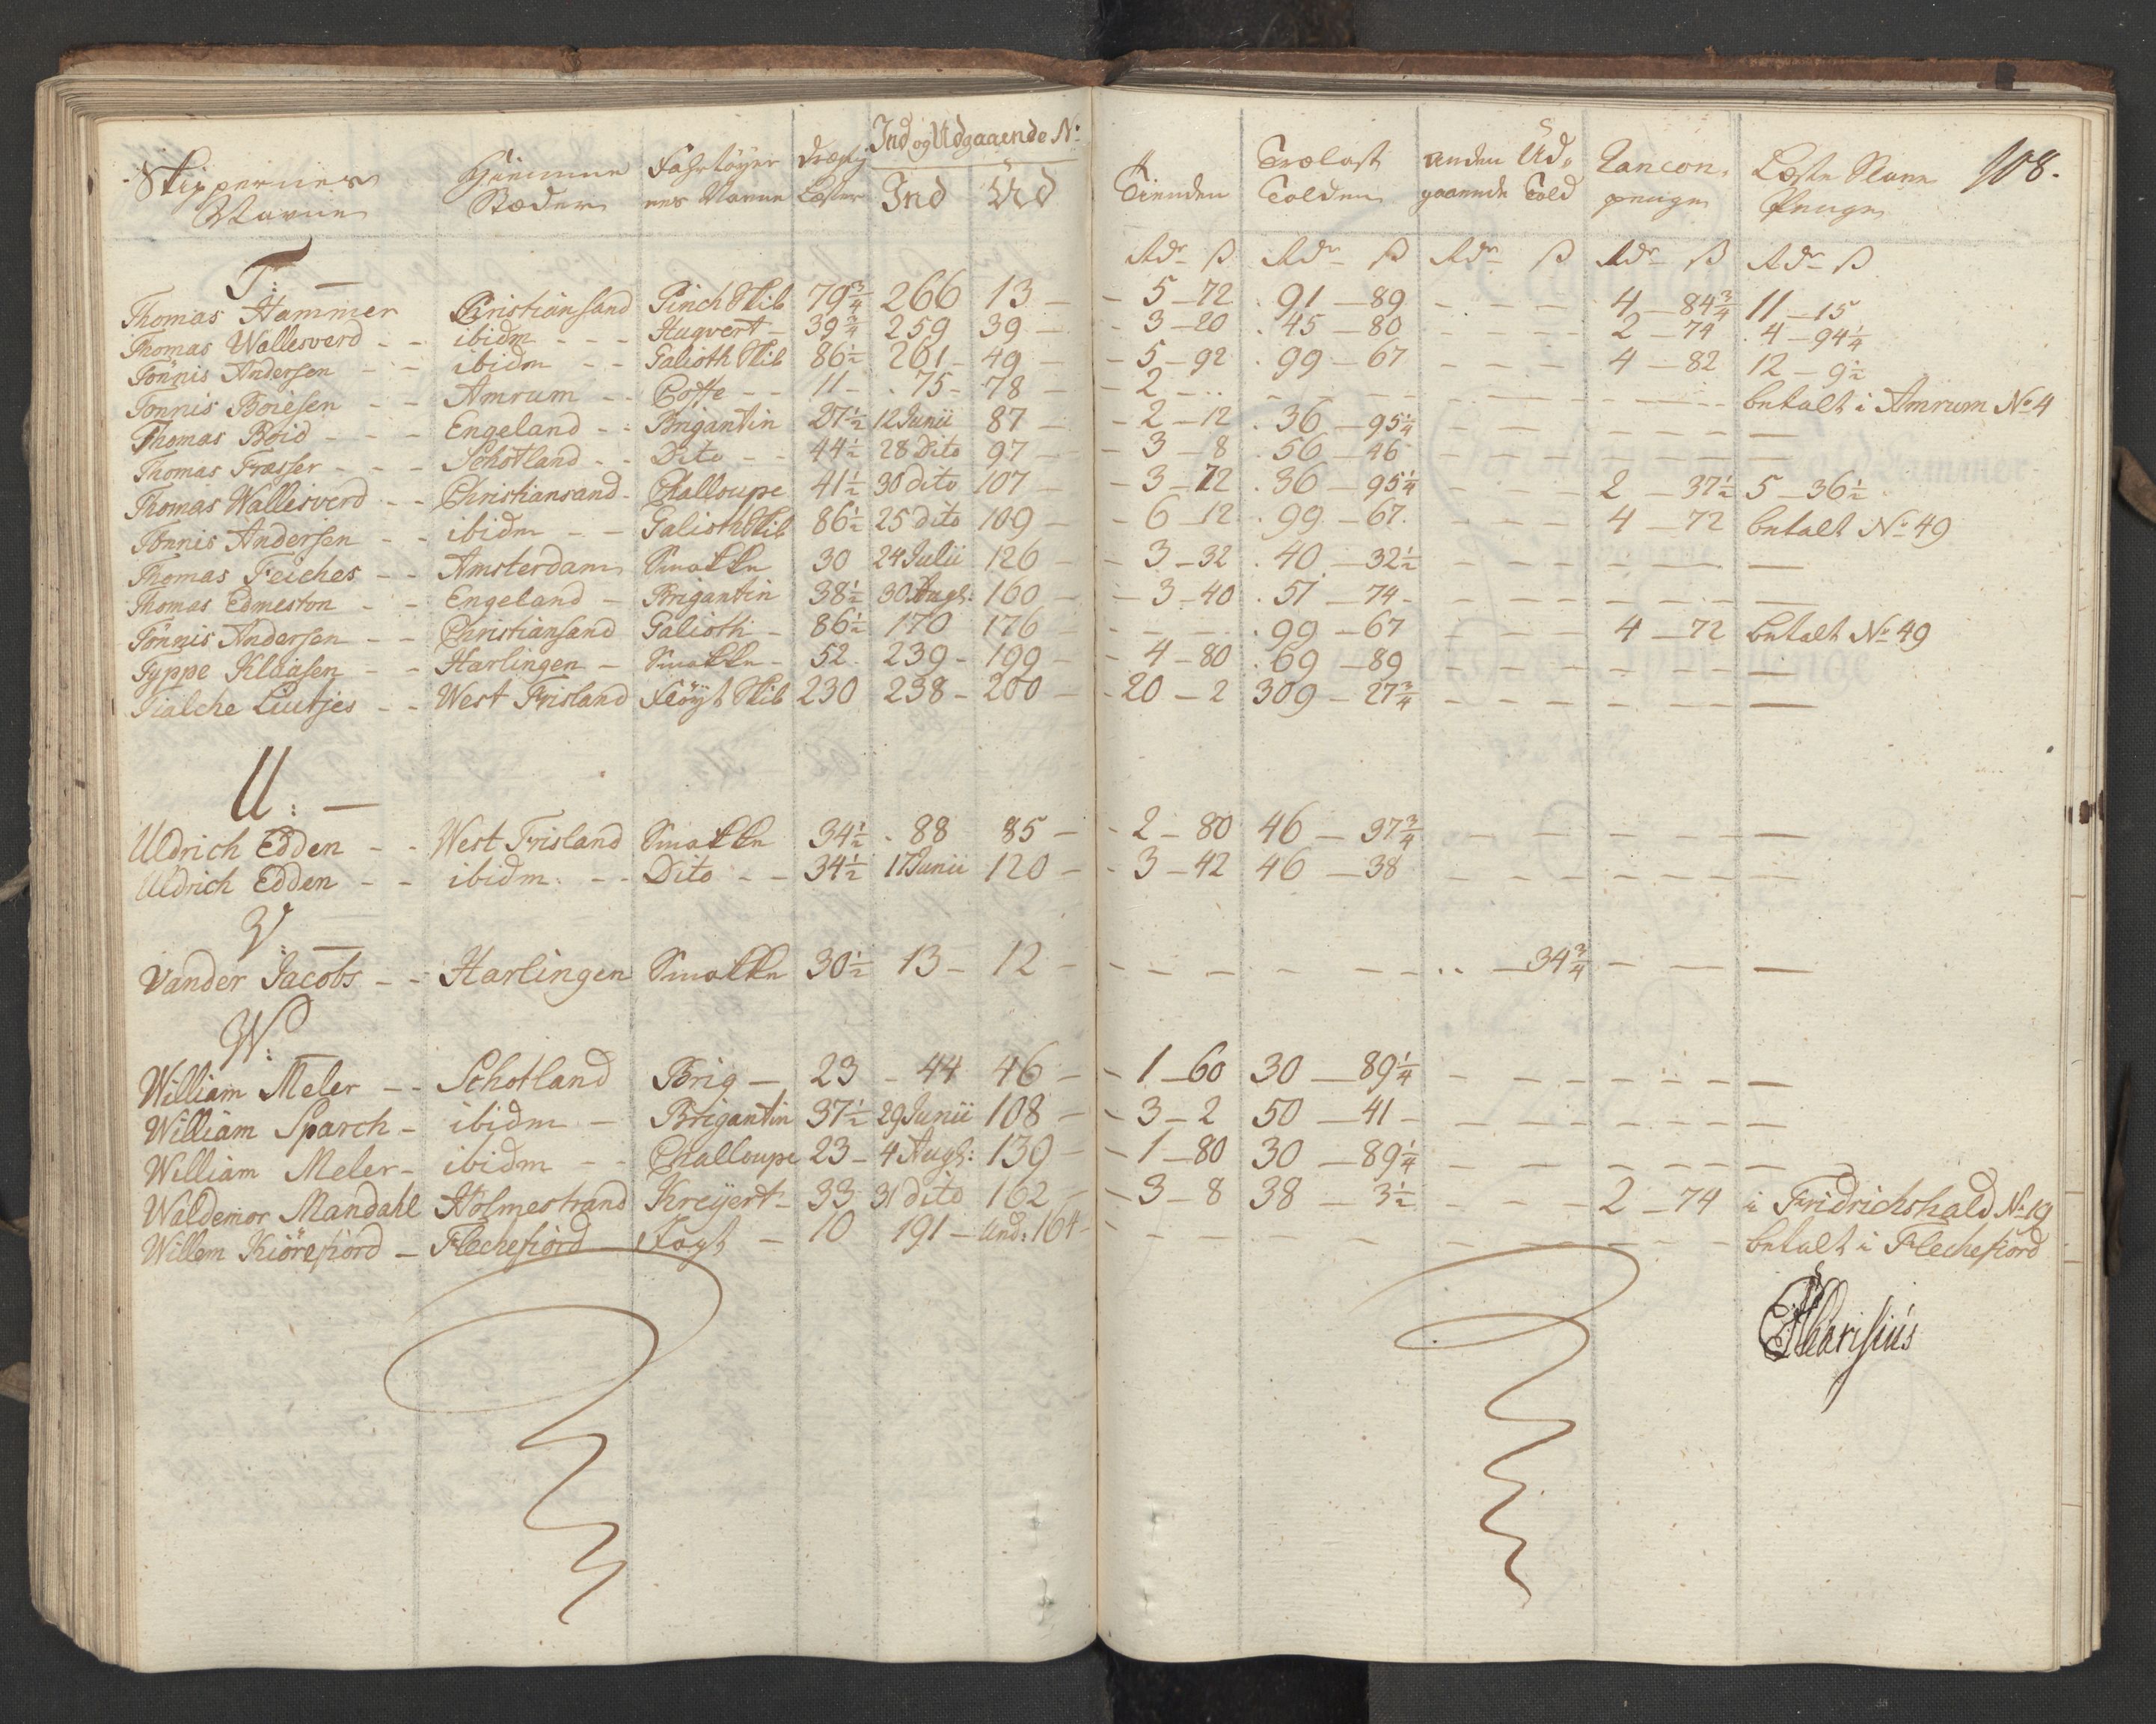 Skippernes Navne | Hiemme Stæder | Fahrtøyernes Navne | Drægt. Læster | Ind og Udgaaende No: Ind | Ud | Tienden | Trælast Tolden | anden Udgaaende Told | Rancon penge | Læste Penge | 108.
Rdr ß | Rdr ß | Rdr ß | Rdr ß | Rdr ß
T: —
Thomas Hammer | Christiansand | Pinch Skib | 79 3/4 | 266 | 13 | 5 - 72 | 91 - 89 | | 4 - 84 3/4 | 11 - 15
Thomas Wallesverd | ibidm | Huqvert | 39 3/4 | 259 | 39 | 3 - 20 | 45 - 80 | | 2 - 74 | 4 - 94 1/4
Tönnis Andersen | ibidm | Galioth Skib | 86 1/2 | 261 | 49 | 5 - 92 | 99 - 67 | | 4 - 82 | 12 - 9 1/2
Tönnis Boiesen | Amrum | Coffe | 11 | 75 | 78 | 2 - | | | | betalt i Amrum No 4
Thomas Boid | Engeland | Brigantin | 27 1/2 | 12 Junii | 87 | 2 - 12 | 36 - 95 1/4
Thomas Fræsser | Schotland | Dito | 44 1/2 | 28 Dito | 97 | 3 - 8 | 56 - 46
Thomas Wallesverd | Christiansand | Challoupe | 41 1/2 | 30 dito | 107 | 3 - 72 | 36 - 95 1/4 | | 2 - 37 1/2 | 5 - 36 1/2
Tönnis Andersen | ibidm | Galioth Skib | 86 1/2 | 25 dito | 109 | 6 - 12 | 99 - 67 | | 4 - 72 | betalt No 49
Thomas Feiches | Amsterdam | Smakke | 30 | 24 Julii | 126 | 3 - 32 | 40 - 32 1/2
Thomas Edmeston | Engeland | Brigantin | 38 1/2 | 30 Augs: | 160 | 3 - 40 | 51 - 74
Tönnis Andersen | Christiansand | Galioth | 86 1/2 | 170 | 176 | | 99 - 67 | | 4 - 72 | betalt No 49
Typpe Klaasen | Harlingen | Smakke | 52 | 239 | 199 | 4 - 80 | 69 - 89
Tialche Liutjes | West Frisland | Flöyt Skib | 230 | 238 | 200 | 20 - 2 | 309 - 27 3/4
U: —
Uldrich Edden | West Frisland | Smakke | 34 1/2 | 88 | 85 | 2 - 80 | 46 - 37 3/4
Uldrich Edden | ibidm | Dito | 34 1/2 | 17 Junii | 120 | 3 - 42 | 46 - 38
V: —
Vander Jacobs | Harlingen | Smakke | 30 1/2 | 13 | 12 | | | - 34 3/4
W: —
William Meler | Schotland | Brig | 23 | 44 | 46 | 1 - 60 | 30 - 89 1/4
William Sparch | ibidm | Brigantin | 37 1/2 | 29 Junii | 108 | 3 - 2 | 50 - 41
William Meler | ibidm | Challoupe | 23 | 4 Augs: | 139 | 1 - 80 | 30 - 89 1/4
Waldemor Mandahl | Holmestrand | Kreyert | 33 | 31 dito | 162 | 3 - 8 | 38 - 3 1/2 | | 2 - 74 | i Fridrichshald No 19
Willem Kiörefiord | Flechefiord | Jagt | 10 | 191 | Und: 164 | | | | | betalt i Flechefiord